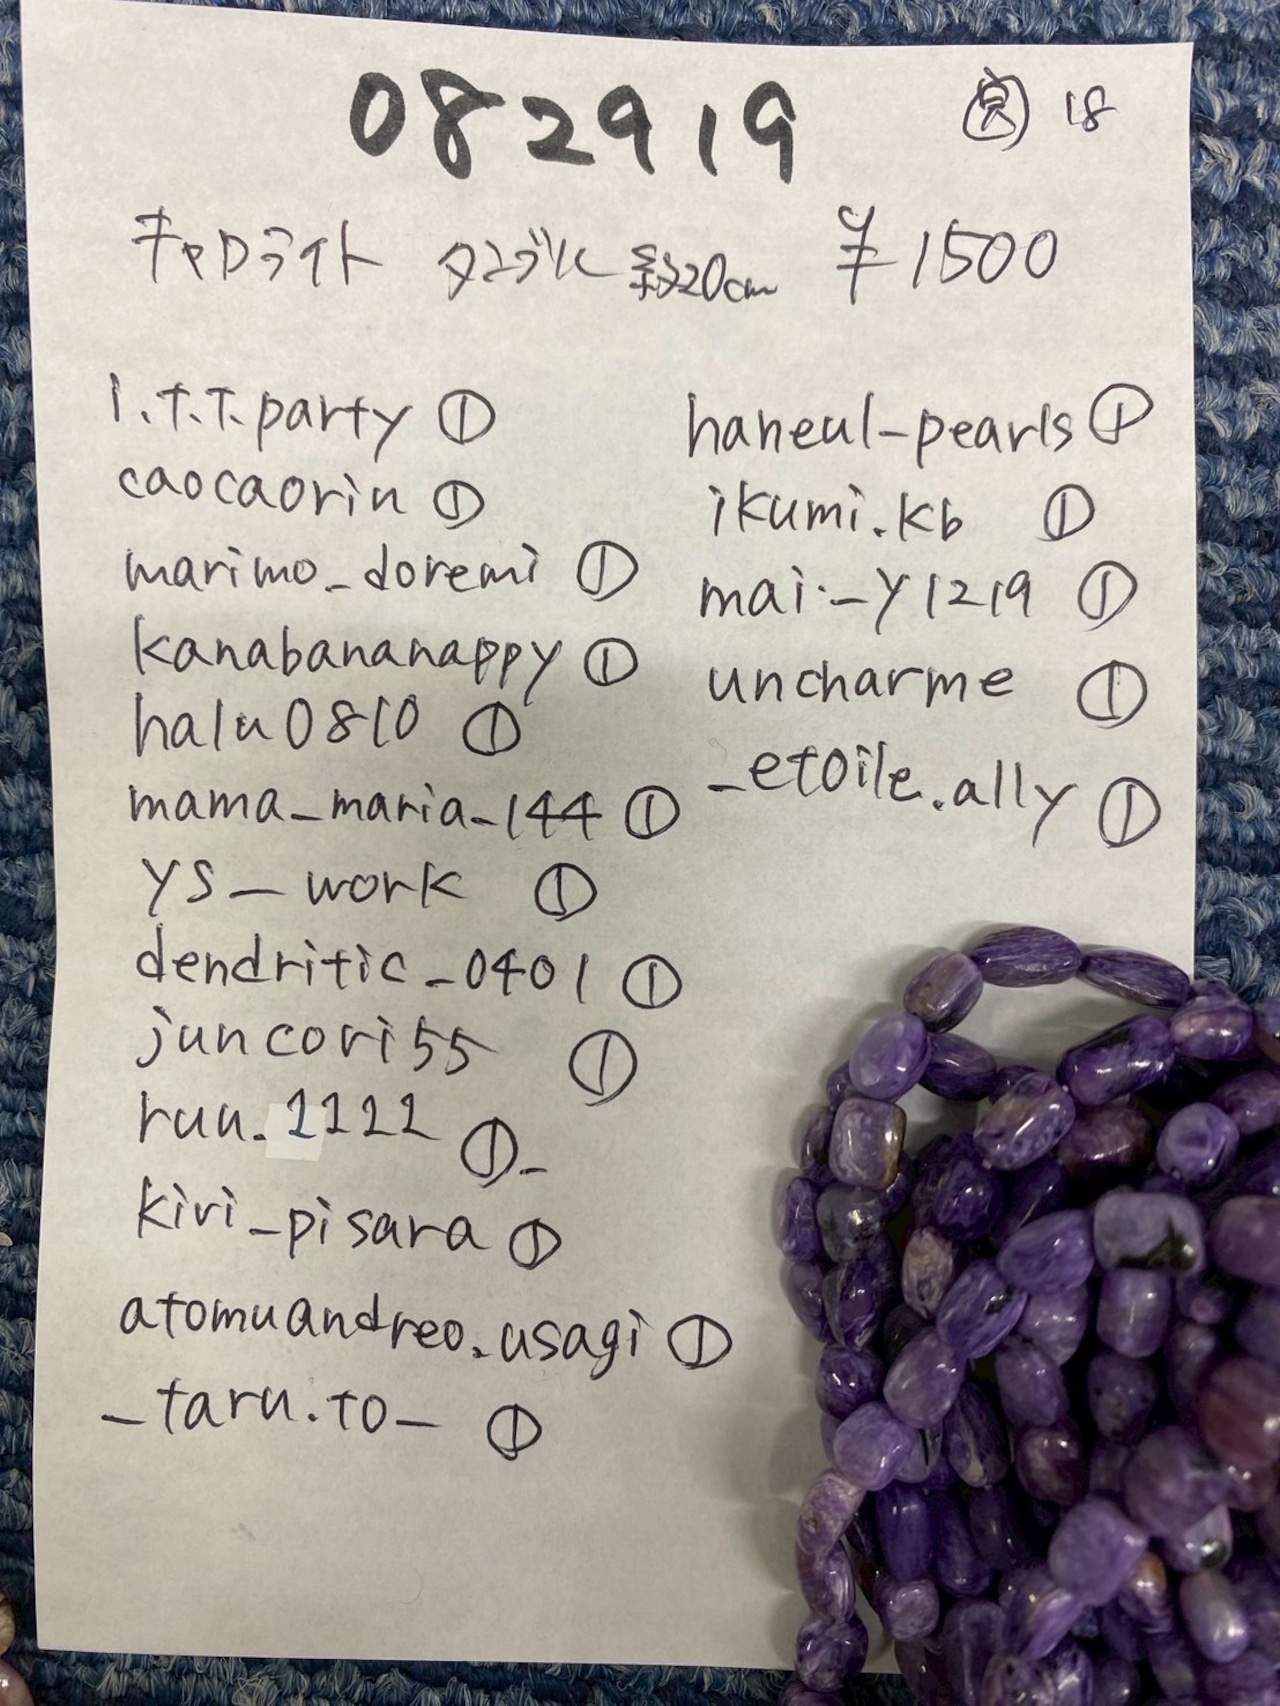 082919
18
チャロライト タンブル 約20cm ¥1500
i.t.t.party ①
caocaorin ①
marimo_doremi ①
kanabananappy ①
halu0810 ①
mama_maria_144 ①
ys_work ①
dendritic_0401 ①
juncori55 ①
ruu.1111 ①_
kiri_pisara ①
atomuandreo.usagi ①
_taru.to_ ①
haneul_pearls ①
ikumi.kb ①
mai._y1219 ①
uncharme ①
_etoile.ally ①